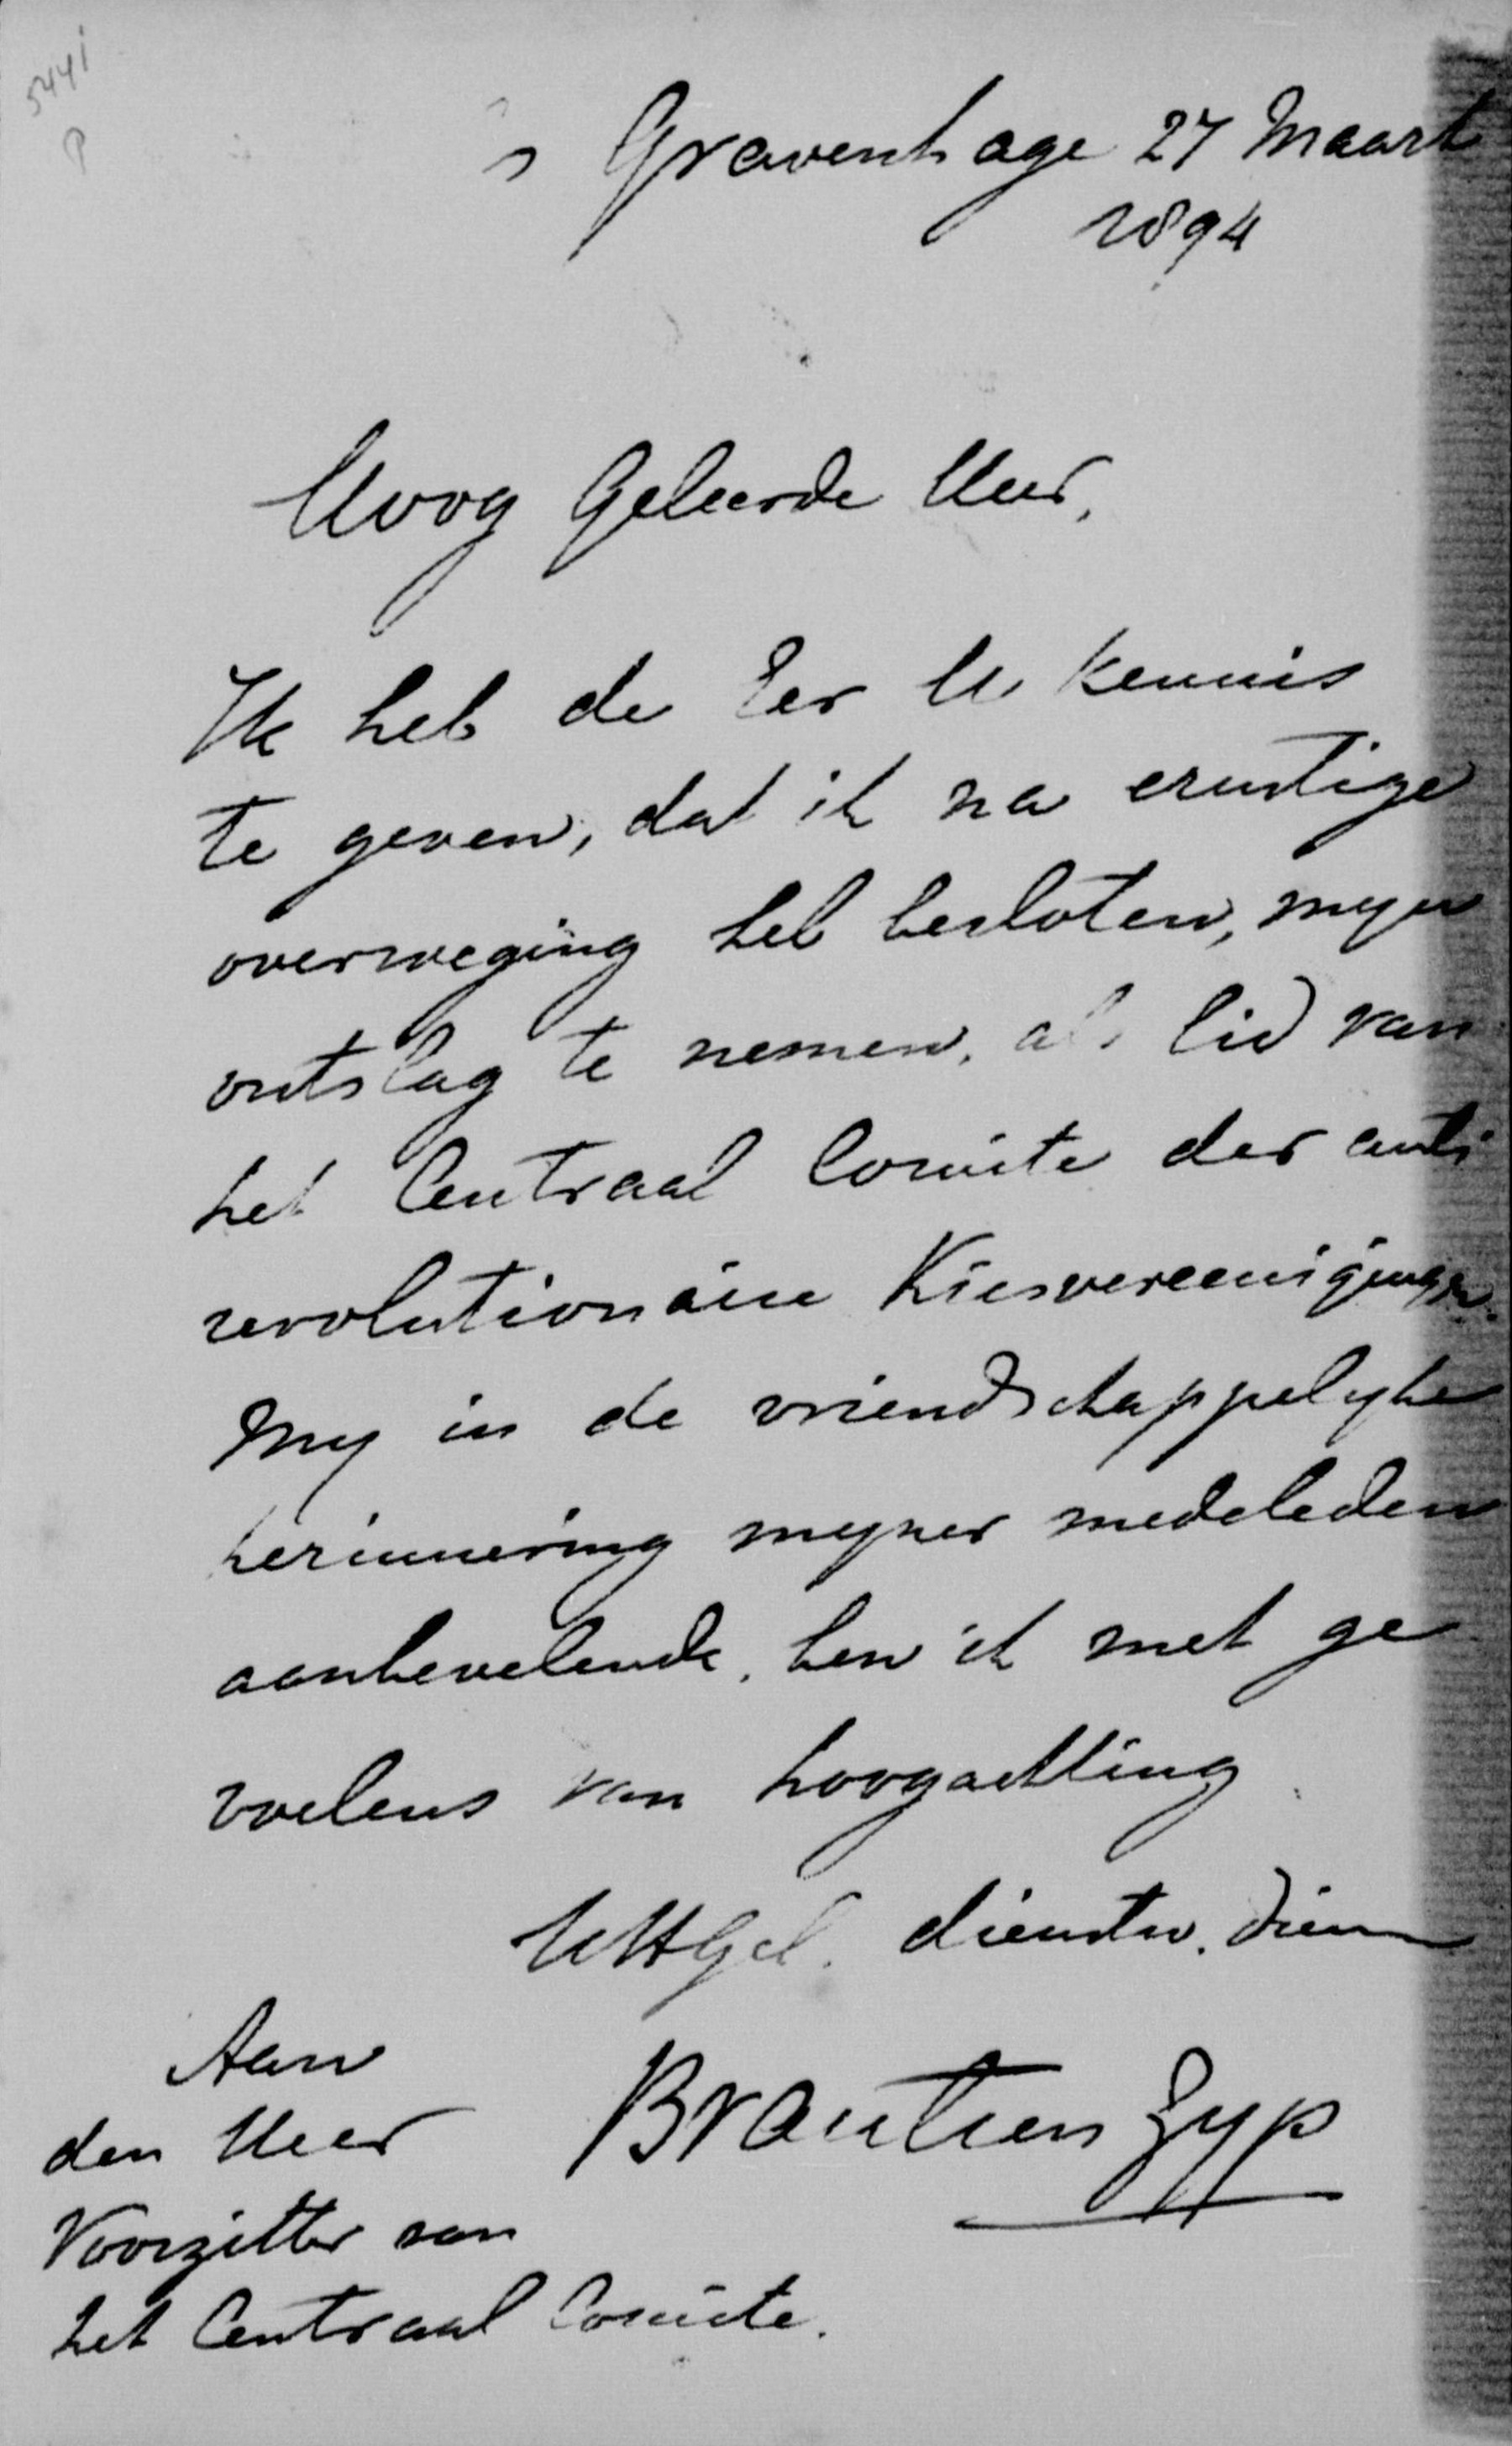 5441
P
's Gravenhage 27 Maart
1894
Hoog Geleerde Heer,
Ik heb de Eer U kennis
te geven, dat ik na ernstige
overweging heb besloten, myn
ontslag te nemen, als lid van
het Centraal Comite der anti
revolutionaire Kiesvereenigingen.
My in de vriendschappelyke
herinnering myner medeleden
aanbevelende, ben ik met ge
voelens van hoogachting
UHGel. dienstw. dien
Brantsen Zyp
Aan
den Heer
Voorzitter van
het Centraal Comite.